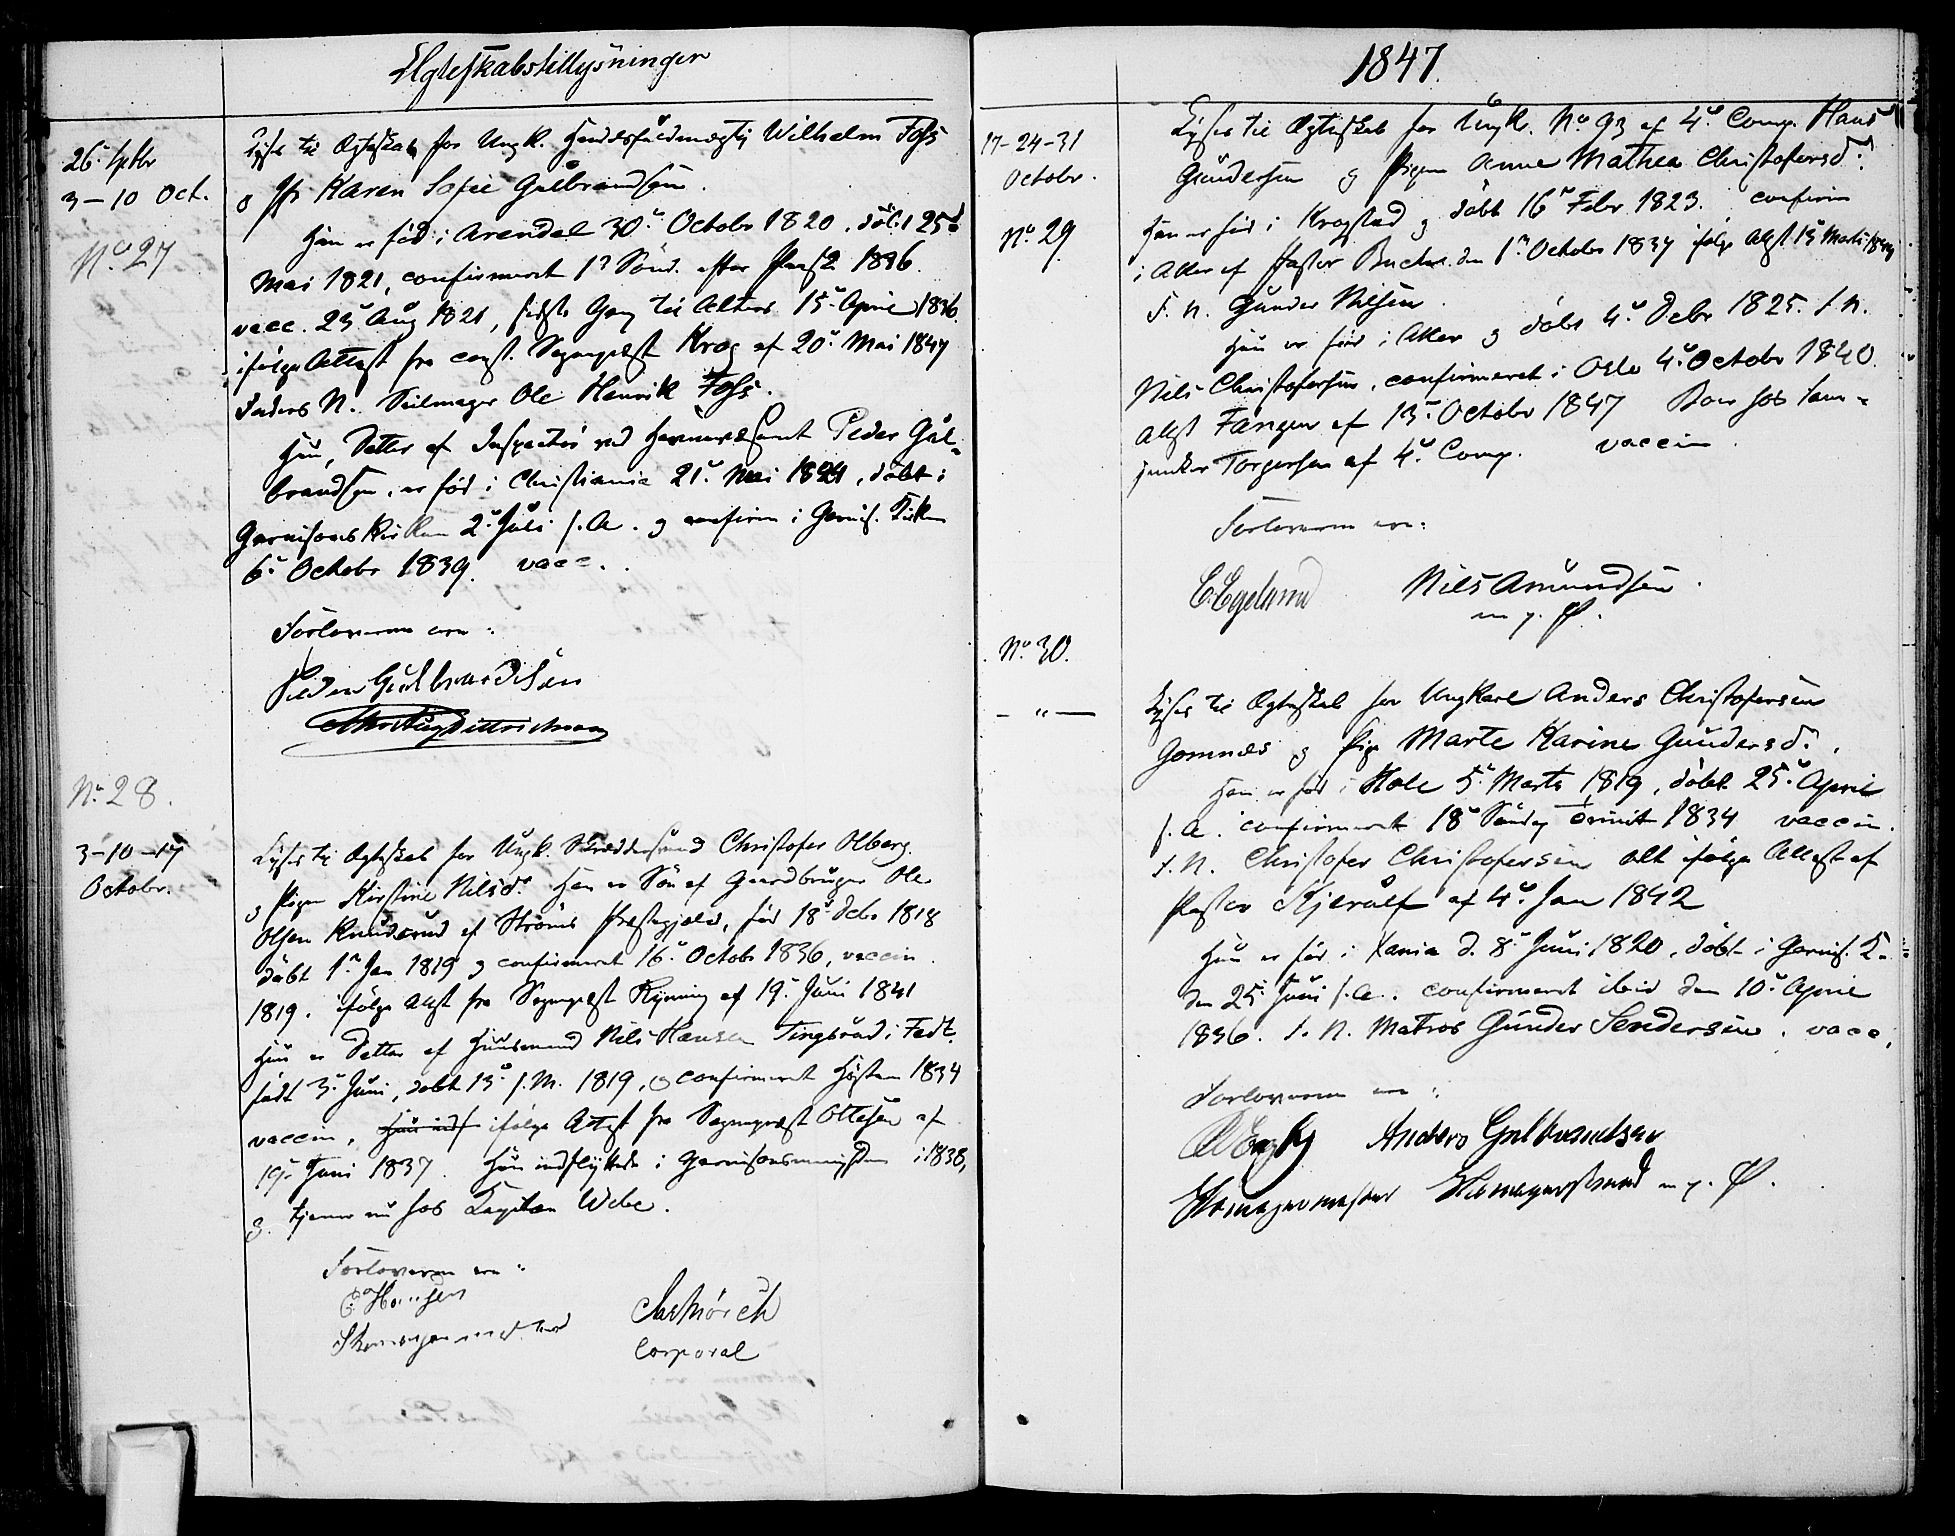 Ægteskabstillysninger
26. Sptbr
3-10 Oct.
No 27
Lyses til Ægteskab for Ungk. Handelsfuldmægtig Wilhelm Foss
og Jfr Karen Sofie Gulbrandsen.
Han er född i Arendel 30te Octobr 1820, döbt 25d
Mai 1821, confirmeret 1ste Sönd. efter Paaske 1836.
vacc. 23de Aug 1821, sidste Gang til Alters 15de April 1836.
ifølge Attest fra const. Sognepræst Krog af 20de Mai 1847
Faders N. Seilmager Ole Henrik Foss.
Hun, Datter af Inspecteur ved Peder Gul-
brandsen, er föd i Christiania 21de Mai 1824, döbt i
Garnisonskirken 2de Juli s.A. og confirm i Garnis. Kirken
6te Octobr 1839. vacc.
Forloverne ere:
Peder Gulbrandsen
Dittrichson
No 28.
3-10-17
Octobr.
Lyses til Ægteskab for Ungk. Skræddersvend Christofer Olberg
og Pigen Kirstine Nilsd. Han er Sön af Gaardbruger Ole
Olsen Knudsrud af Ströms Præstegjeld, föd 18de Debr 1818
döbt 1ste Jan 1819 og confirmeret 16de Octobr 1836, vaccin
1819. ifölge Attest fra Sognepræst Rynning af 19de Juni 1841
Hun er Datter af Huusmand Nils Hansen Tingbraad i Fedt.
födt 3de Juni, döbt 13de s.M. 1819, og confirmeret Hösten 1834
vaccin, Hun ind ifölge Attest fra Sognepræst Ottesen af
19de Juni 1837. Hun indflyttede i Garnisonsmenigheden i 1838,
og tjener nu hos Kapitain Webe.
Forloverne ere:
C. Hansen
Skomagermester
Mörch
Corporal
1847.
17-24-31
Octobr.
No 29
Lyses til Ægteskab for Ungk. No 93 af 4de Comp. Hans
Gundersen og Pigen Anne Mathea Christofersd.
Han er föd i Krogstad og döbt 16de Febr 1823. confirm
i Aker af Pastor Bucher den 1ste Octobr 1837 ifölge Attest 13de Marts 1844
F. N. Gunder Nilsen.
Hun er föd i Aker og döbt 4de Debr 1825. F. N.
Nils Christofersen, confirmeret i Oslo 4de Octobr 1840.
Attest Fangen af 13de Octobr 1847 Boer hos Land-
junker Torgersen af 4de Comp. vaccin.
Forloverne ere:
C. Egeland Nils Amundsen
m. p. P.
No. 30.
- " -
Lyses til Ægteskab for Ungkarl Anders Christofersen
Gomnæs og Pige Marte Karine Gundersd.
Han er föd i Hole 5te Marts 1819, döbt 25de April
s. A. confirmeret 18de Söndag Trinit 1834 vaccin.
F. N. Christofer Christofersen alt ifölge Attest af
Pastor Kjerulf af 4de Jan 1842
Hun er föd i Xania d. 8de Juni 1820, döbt i Garnis. K.
den 25de Juni s.A. confirmeret ibid den 10de April
1836. F. N. Matros Gunder Sendersen. vacc.
Forloverne ere:
Anders Gulbrandsen
Skomagermester Skomagersvend m. p. P.